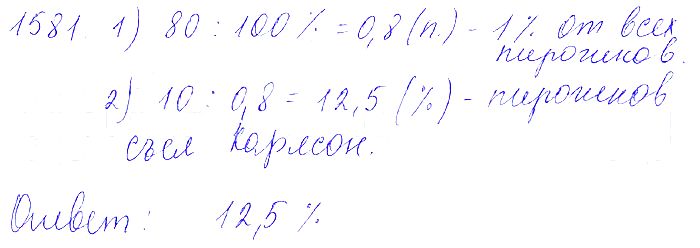 1581. 1) 80 : 100% = 0,8 (п.) - 1% от всех
пирожков.
2) 10 : 0,8 = 12,5 (%) - пирожков
съел Карлсон.
Ответ: 12,5 %